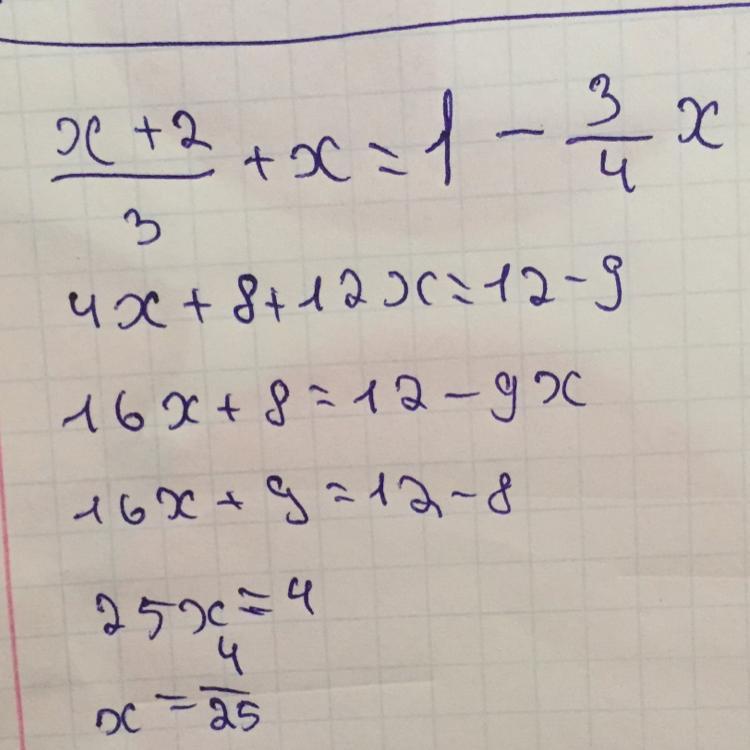 x + 2 / 3 + x = 1 - 3/4 x
4x + 8 + 12x = 12 - 9
16x + 8 = 12 - 9x
16x + 9 = 12 - 8
25x = 4
x = 4/25